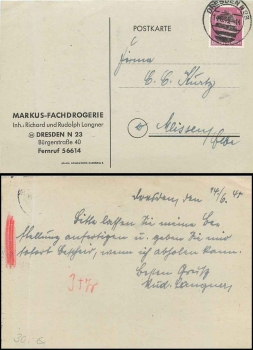 DRESDEN A 23
POSTKARTE
Firma
C. C. Kurtz
MARKUS-FACHDROGERIE
Inh.: Richard und Rudolph Langner
DRESDEN N 23
Bürgerstraße 40
Fernruf 56614
Meissen/
Elbe
Dresden, den 14/6. 45
Bitte lassen Sie meine Be-
stellung anfertigen u. geben Sie mir
sofort Bescheid, wann ich abholen kann.
Besten Gruß
Rud. Langner